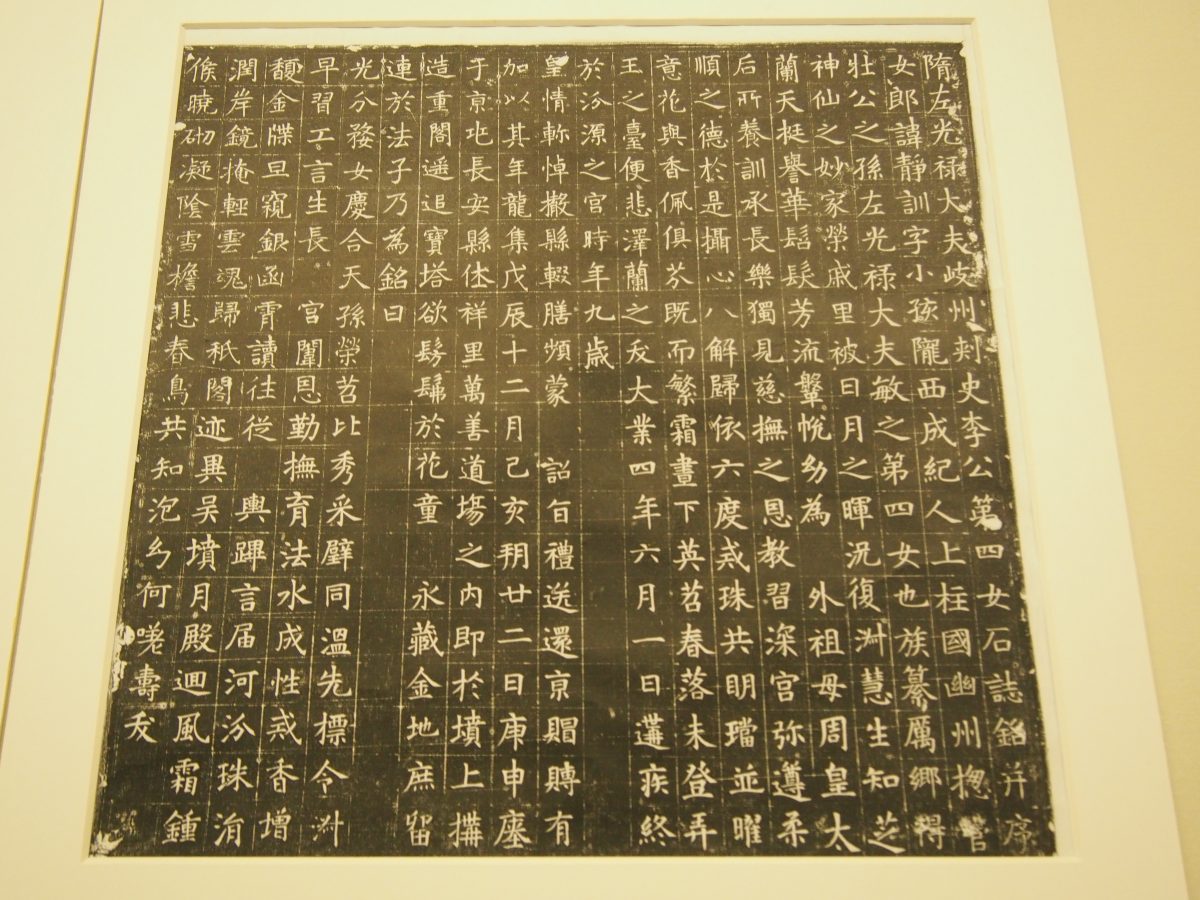 隋左光禄大夫岐州刾史李公第四女石誌銘并序
女郎諱靜訓字小孩隴西成紀人上柱國幽州揔管
壯公之孫左光禄大夫敏之第四女也族纂厲鄉得
神仙之妙家榮戚里被日月之暉況復淑慧生知芝
蘭天挺譽華髫髮芳流鞶帨幼為 外祖母周皇太
后所養訓承長樂獨見慈撫之恩教習深宮弥遵柔
順之德於是攝心八解歸依六度戒珠共明璫並曜
意花與香佩俱芬既而繁霜晝下英苕春落未登弄
玉之臺便悲澤蘭之夭大業四年六月一日遘疾終
於汾源之宮時年九歳
皇情軫悼撤縣輟膳頻蒙 詔旨禮送還京賵賻有
加以其年龍集戊辰十二月己亥朔廿二日庚申塟
于京兆長安縣休祥里萬善道場之内即於墳上搆
造重閣遥追寶塔欲髣髴於花童 永藏金地庶留
連於法子乃為銘曰
光分婺女慶合天孫榮苕比秀采璧同溫先標令淑
早習工言生長 宮闈恩勤撫育法水成性戒香增
馥金牒旦窺銀函霄讀往從 輿蹕言届河汾珠涓
潤岸鏡掩輕雲魂歸秖閣迹異吳墳月殿迴風霜鍾
候曉砌凝陰雪檐悲春鳥共知泡幻何嗟壽夭